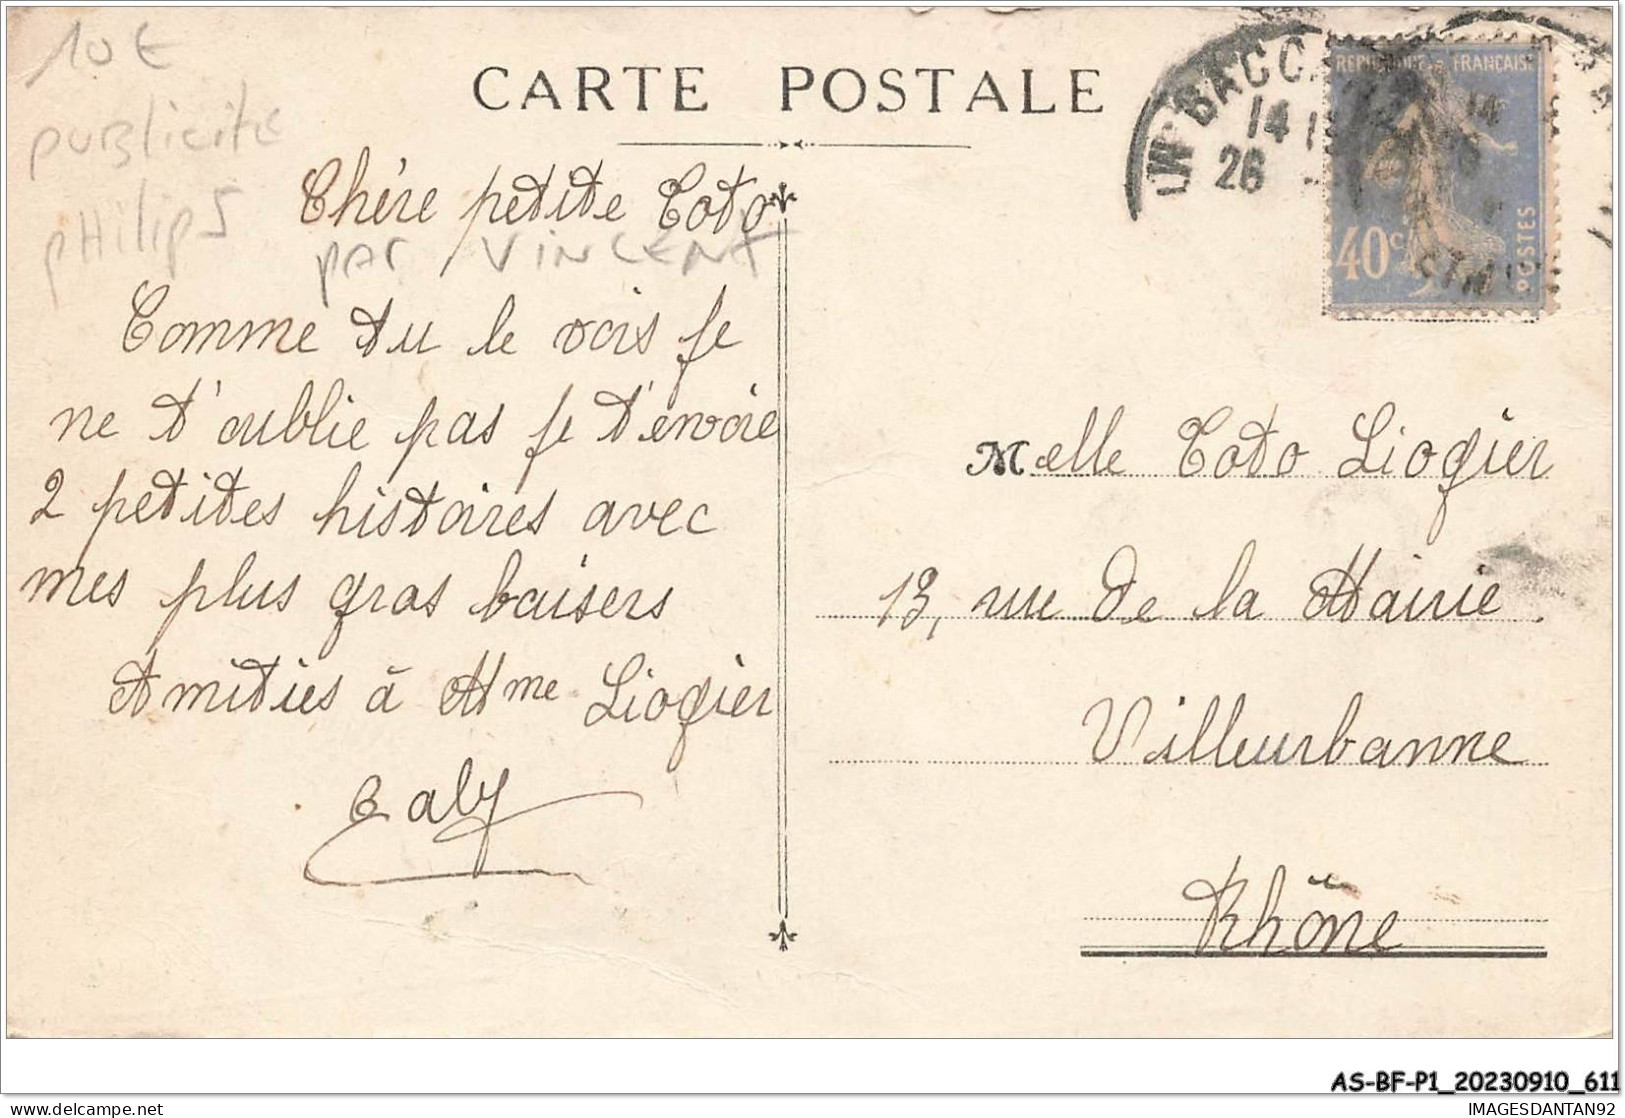 10€
publicité
philips
par VINCENT
CARTE POSTALE
Chère petite Toto
Comme tu le vois je
ne t'oublie pas je t'envoie
2 petites histoires avec
mes plus gros baisers
Amitiés à Mme Liogier
Gaby
BACCA
14
26
REPUBLIQUE FRANÇAISE
40c
POSTES
Melle Toto Liogier
13, rue de la Mairie.
Villeurbanne
Rhône
AS-BF-P1_20230910_611
IMAGESDANTAN92